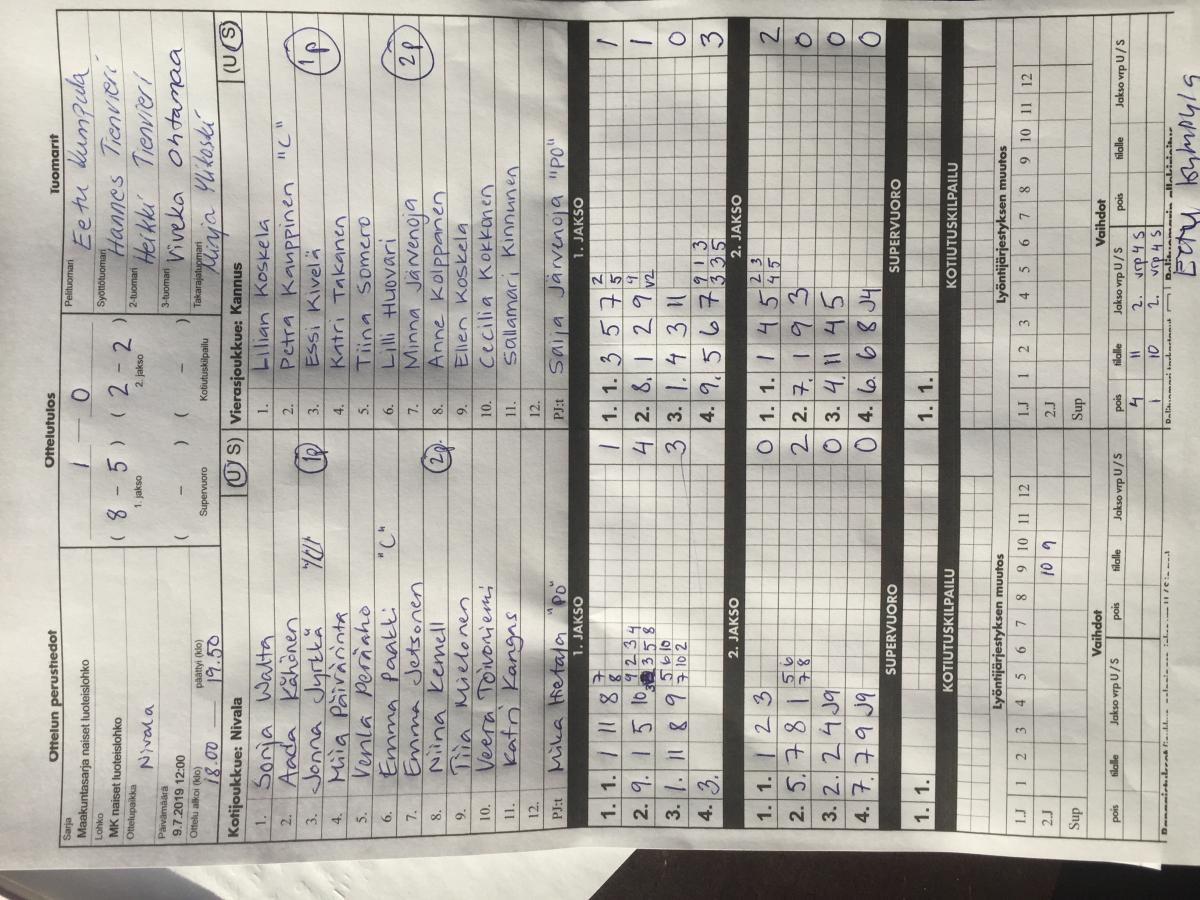 Ottelun perustiedot
Sarja
Maakuntasarja naiset luoteislohko
Lohko
MK naiset luoteislohko
Ottelupaikka
Nivala
Päivämäärä
9.7.2019 12:00
Ottelu alkoi (klo) päättyi (klo)
18.00 19.50
Ottelutulos
1 — 0
( 8 - 5 ) ( 2 - 2 )
1. jakso 2. jakso
( - ) ( - )
Supervuoro Kotiutuskilpailu
Tuomarit
Pelituomari
Eetu Kumpula
Syöttötuomari
Hannes Tienvieri
2-tuomari
Herkki Tienvieri
3-tuomari
Viveka Ohtamaa
Takarajatuomari
Minja Ylikoski
Kotijoukkue: Nivala (U/S)
1. Sonja Walta
2. Aada Kähönen
3. Jonna Jyrkkä 1p
4. Miia Päivärinta
5. Venla Peräaho
6. Emma Paakki "C"
7. Emma Jetsonen
8. Niina Kemell 2p.
9. Tiia Mielonen
10. Veera Toivoniemi
11. Katri Kangas
12.
PJ:t Mika Hietala "PO"
Vierasjoukkue: Kannus (U/S)
1. Lilian Koskela
2. Petra Kauppinen "C"
3. Essi Kivelä 1p
4. Katri Takanen
5. Tiina Somero
6. Lilli Huovari 2p
7. Minna Järvenoja
8. Anne Kolppanen
9. Ellen Koskela
10. Cecilia Kokkonen
11. Sallamari Kinnunen
12.
PJ:t Saija Järvenoja "PO"
1. JAKSO
1. 1. 1 11 8 7 8 1
2. 9. 1 5 10 9 2 3 4 3 3 5 8 4
3. 1. 11 8 9 5 6 10 7 10 2 3
4. 3.
2. JAKSO
1. 1. 1 2 3 0
2. 5. 7 8 1 5 6 7 8 2
3. 2. 2 4 J9 0
4. 7. 7 9 J9 0
SUPERVUORO
1. 1.
KOTIUTUSKILPAILU
1. JAKSO
1. 1. 3 5 7 2 5 1
2. 8. 1 2 9 9 V2 1
3. 1. 4 3 11 0
4. 9. 5 6 7 9 1 3 3 3 5 3
2. JAKSO
1. 1. 1 4 5 2 3 4 5 2
2. 7. 1 9 3 0
3. 4. 11 4 5 0
4. 6. 6 8 J4 0
SUPERVUORO
1. 1.
KOTIUTUSKILPAILU
Lyöntijärjestyksen muutos
1.J 1 2 3 4 5 6 7 8 9 10 11 12
2.J 10 9
Sup
Vaihdot
pois tilalle Jakso vrp U / S pois tilalle Jakso vrp U / S
Lyöntijärjestyksen muutos
1.J 1 2 3 4 5 6 7 8 9 10 11 12
2.J
Sup
Vaihdot
pois tilalle Jakso vrp U / S pois tilalle Jakso vrp U / S
4 11 2. vrp 4 S
1 10 2. vrp 4 S
Eetu Kumpula